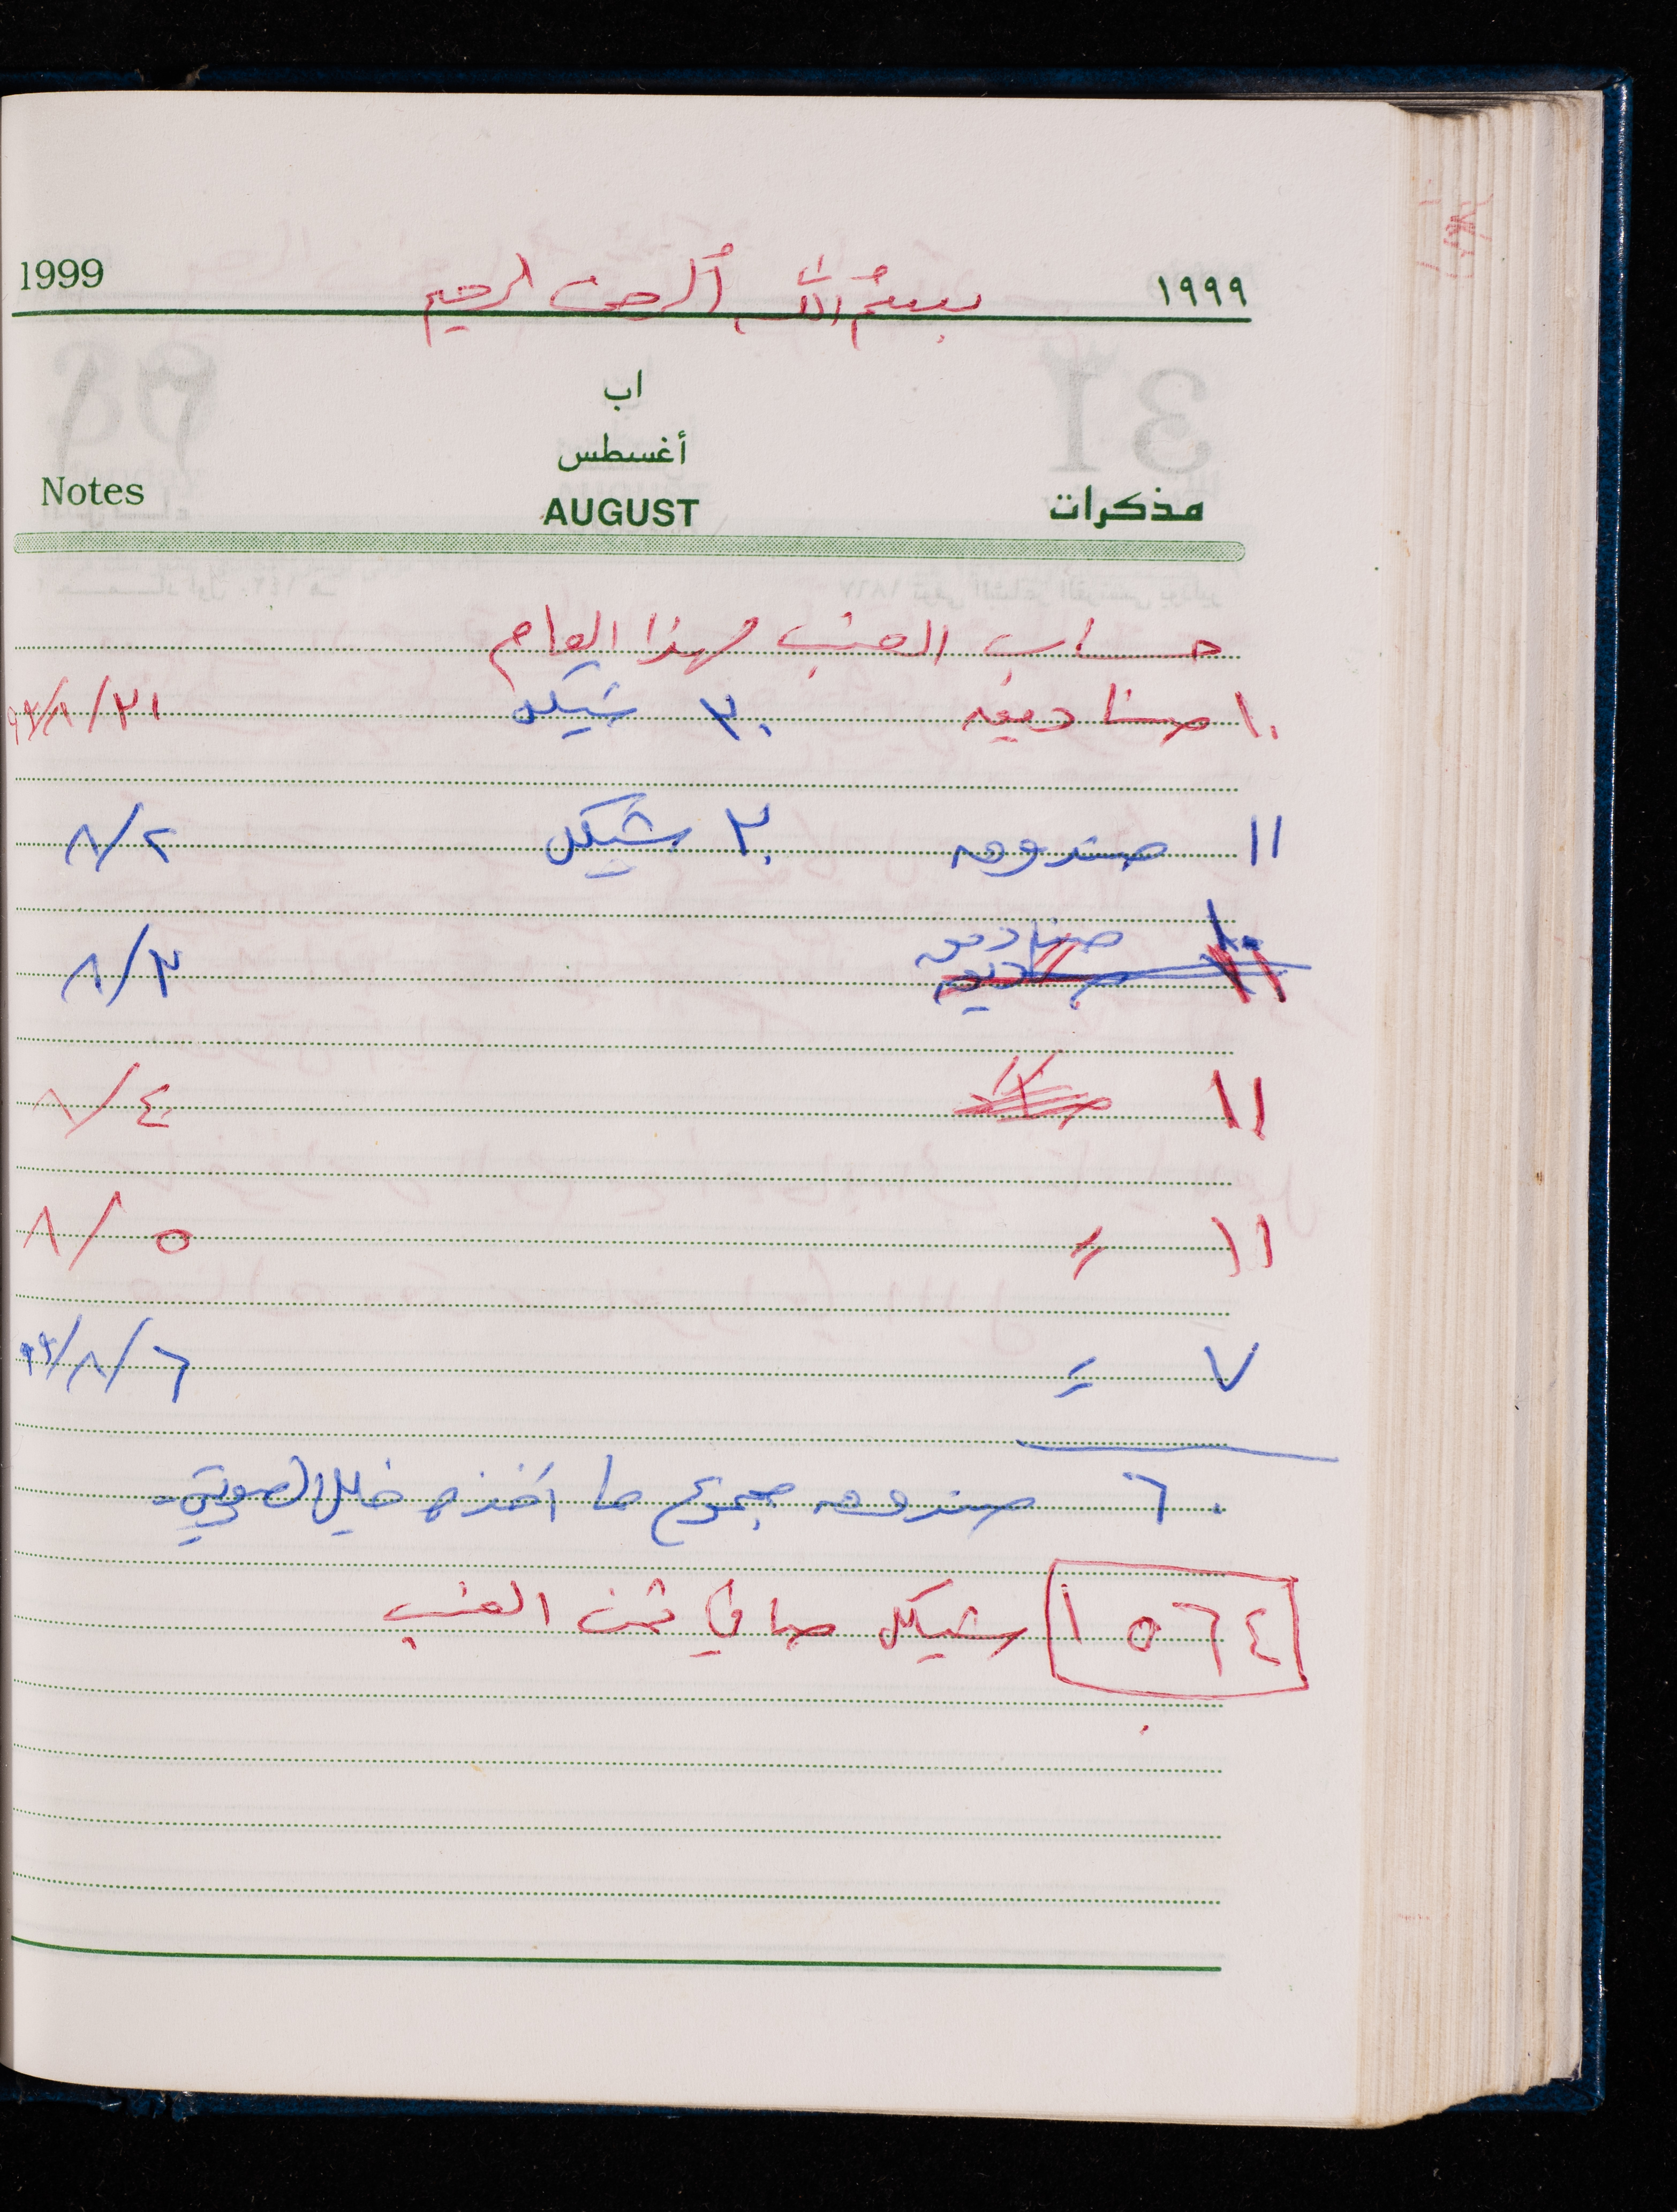 1999 بسم الله الرحمن الرحيم ١٩٩٩
اب
أغسطس
Notes AUGUST مذكرات
حساب العنب لهذا العام
١٠ صناديق ٣٠ شيكل ٣١/٨/٩٩
١١ صندوق ٣٠ شيكل ٢/٨
١٠ صناديق ٣/٨
١١ ٤/٨
١١〃 ٥/٨
٧ 〃 ٦/٨/٩٩
٦٠ صندوق مجموع ما أخذه خليل الصويتي -
١٥٦٤ شيكل صافي ثمن العنب